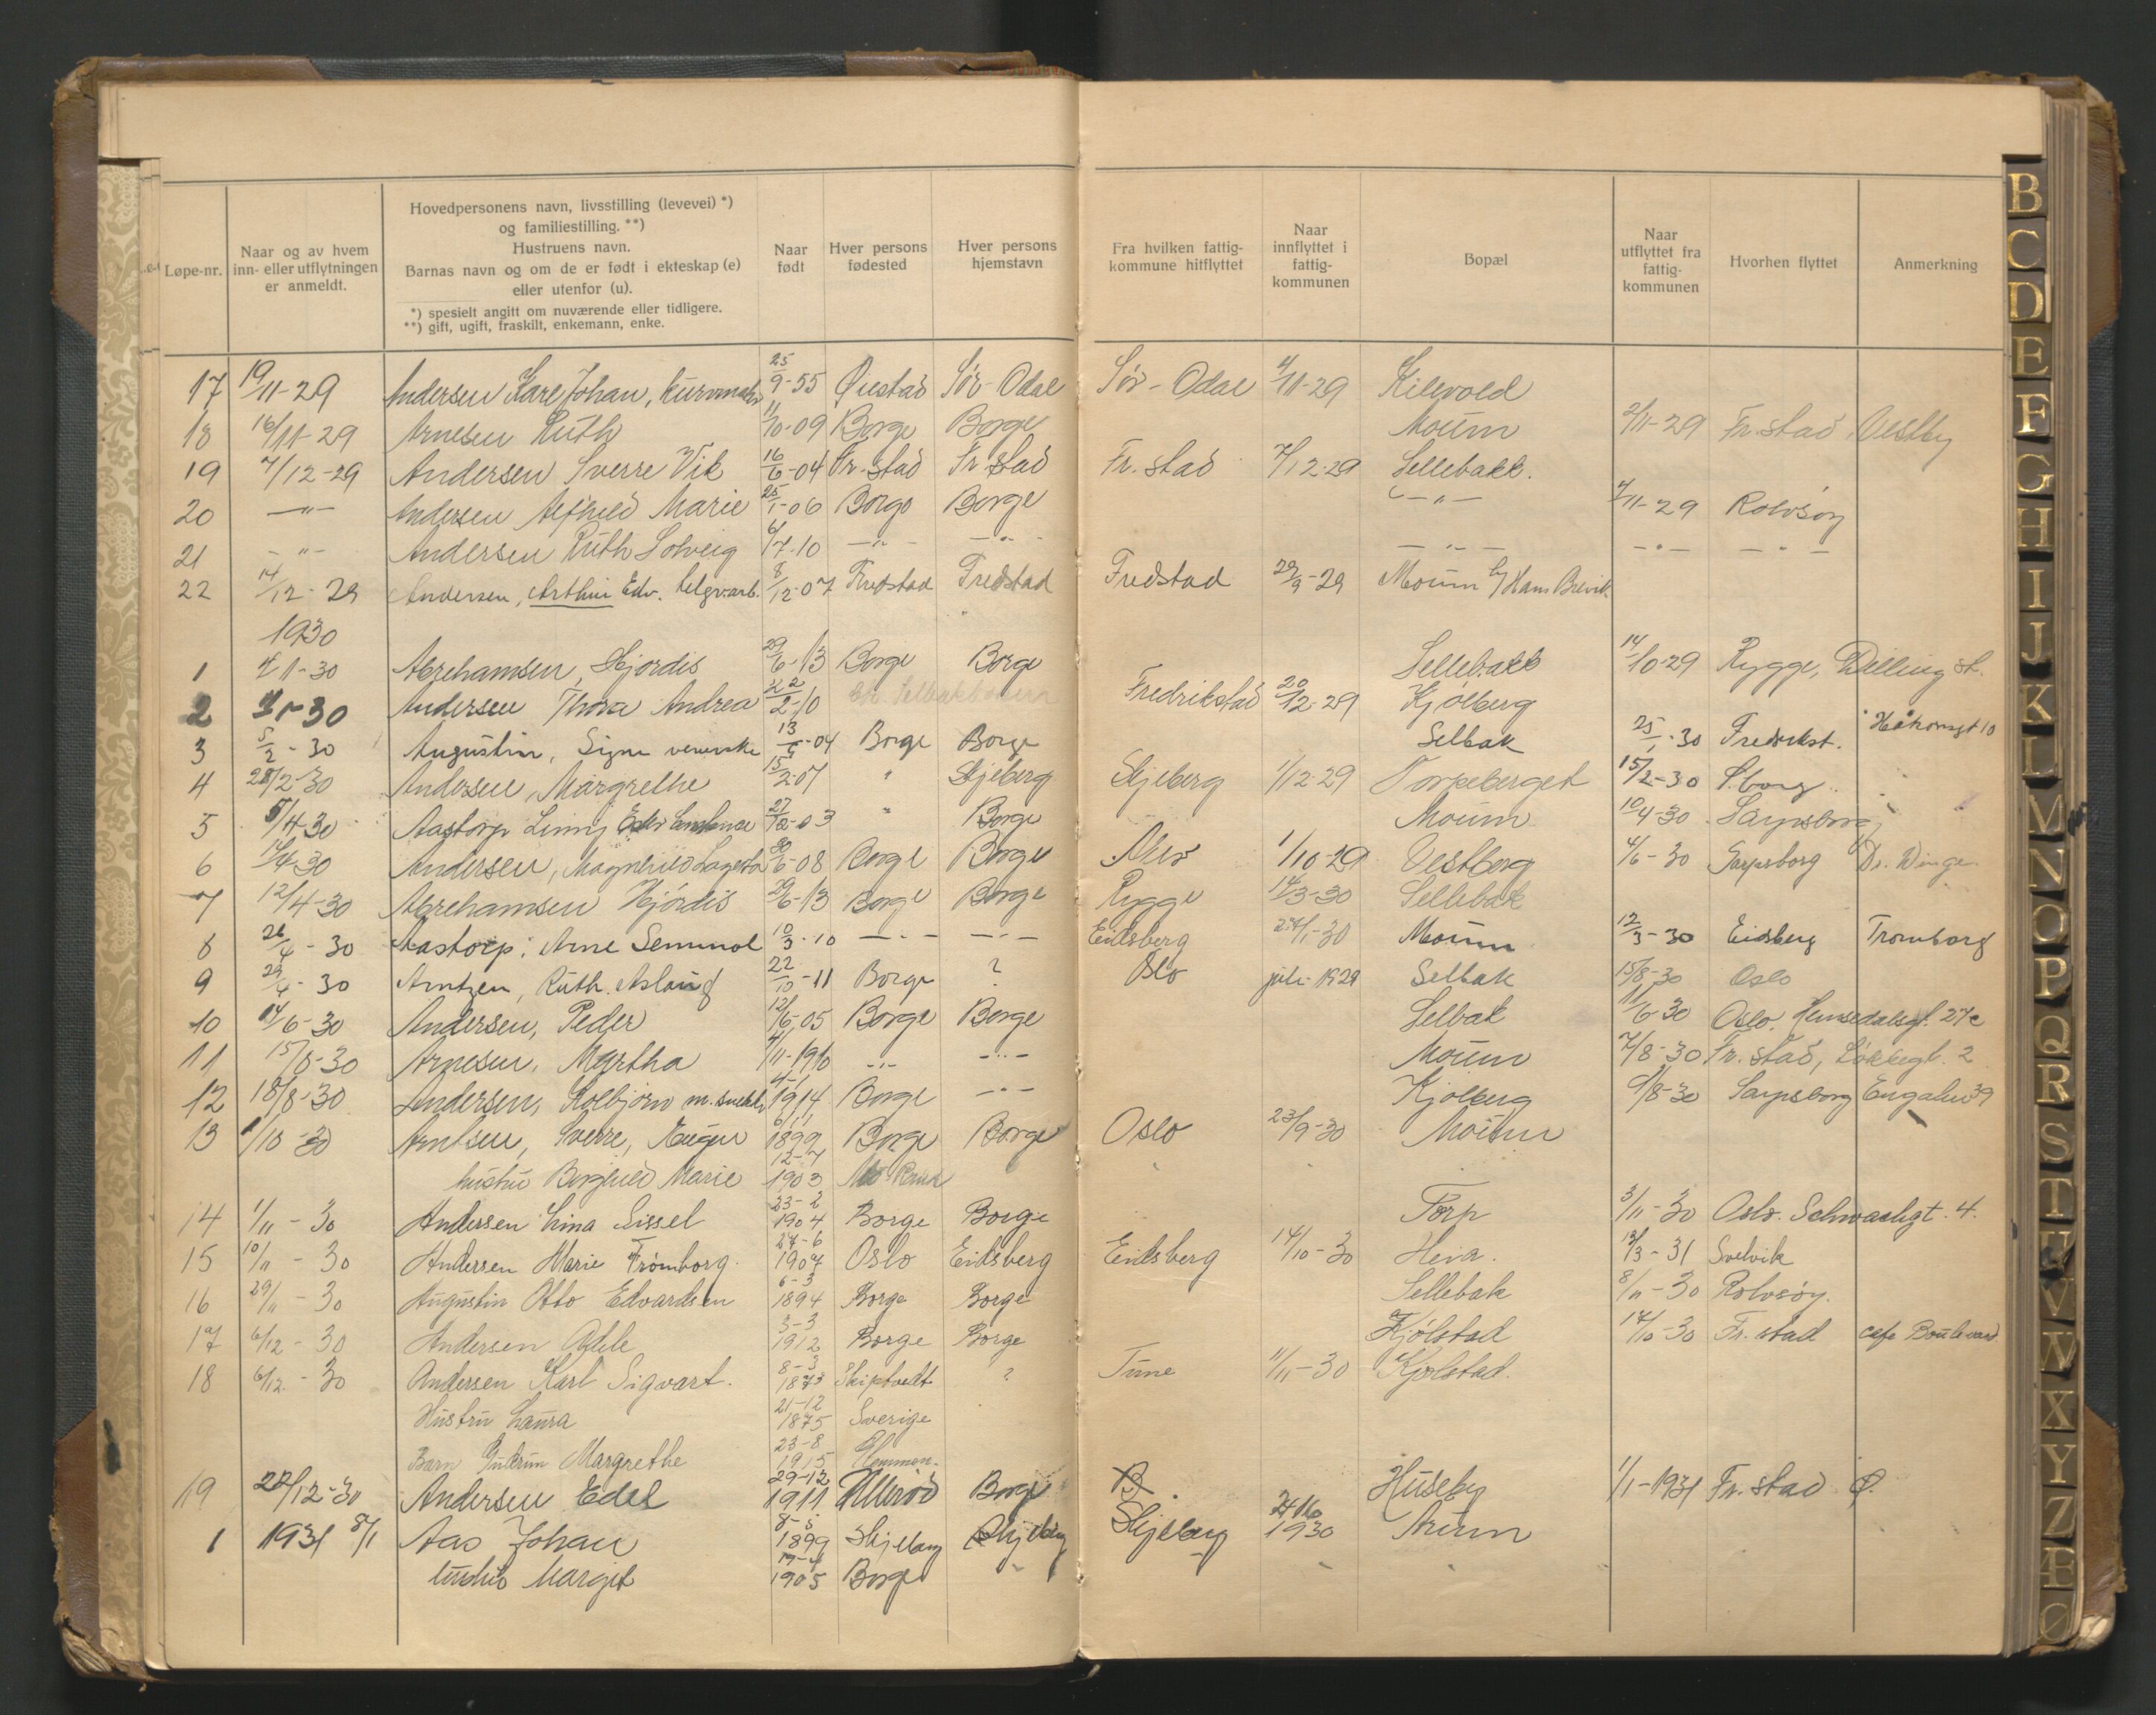 Løpe-nr.
Naar og av hvem inn- eller utflytningen er anmeldt.
Hovedpersonens navn, livsstilling (levevei) *) og familiestilling. **) Hustruens navn. Barnas navn og om de er født i ekteskap (e) eller utenfor (u).
*) spesielt angitt om nuværende eller tidligere.
**) gift, ugift, fraskilt, enkemann, enke.
Naar født
Hver persons fødested
Hver persons hjemstavn
Fra hvilken fattig-kommune hitflyttet
Naar innflyttet i fattig-kommunen
Bopæl
Naar utflyttet fra fattig-kommunen
Hvorhen flyttet
Anmerkning
17 19/11-29 Andersen Kare Johan, 25/9-55 Sør-Odal Sør-Odal 4/11-29 Kilevold
18 16/11-29 Arnesen Ruth 11/10-09 Borge Borge Moum 2/11-29 Fr.stad Vestby
19 7/12-29 Andersen Sverre Vik 16/6-04 Fr.stad Fr.stad Fr.stad 7/12-29 Sellebakk.
20 -"- Andersen Alfhild Marie 25/1-06 Borge Borge -"- 4/11-29 Rolvsøy
21 -"- Andersen Ruth Solveig 6/7-10 -"- -"- -"- -"- -"-
22 14/12-29 Andersen, Arthur Edv. 8/12-07 Fredstad Fredstad Fredstad 29/9-29 Moum b/ Hans Brevik
1930
1 4/1-30 Abrehamsen, Hjørdis 29/6-13 Borge Borge Sellebakk 14/10-29 Rygge, Dilling st.
2 -30 Andersen Thora Andrea 2-10 Fredrikstad 20/12-29 Kjølberg
3 5/2-30 Augustin, Signe 13/5-04 Borge Borge Selbak 25/1-30 Fredrikst. Håkonsgt 10
4 28/2-30 Andersen, Margrethe 15/2-07 " Skjeberg Skjeberg 1/12-29 Torpeberget 15/2-30 S.borg
5 8/4-30 Aastorp Linny 27/12-03 " Borge Moum 10/4-30 Sarpsborg
6 /4-30 Andersen, Magnhild 30/6-08 Borge Borge 1/10-29 Vestberg 4/6-30 Sarpsborg Dr. Winge
7 12/4-30 Abrehamsen Hjørdis 29/6-13 Borge Borge Rygge 14/3-30 Sellebak
8 26/4-30 Aastorp, Arne 10/3-10 -"- -"- Eidsberg /1-30 Moum 12/3-30 Eidsberg Trømborg
9 29/4-30 Arntzen, Ruth Aslaug 22/10-11 Borge ? Oslo juli-1929 Selbak 15/8-30 Oslo
10 14/6-30 Andersen, Peder 12/6-05 Borge Borge Selbak 11/6-30 Oslo. Hemsedalsgt. 27c
11 15/8-30 Arnesen, Martha 4/11-1910 -"- -"- Moum 7/8-30 Fr.stad, Løkkegt. 2
12 18/8-30 Andersen, Kolbjørn 4-1 1914 Borge -"- Kjølberg /8-30 Sarpsborg Engalen 39
13 /10-30 Arntsen, Sverre, Eugen 1899 Borge Borge Oslo 23/9-30 Moum
hustru Borghild Marie 12-7 1903
14 1/11-30 Andersen Lina Sissel 23-2 1904 Borge Borge Torp 3/11-30 Oslo. Schwachgt. 4.
15 10/11-30 Andersen Marie Trømborg. 27-6 1907 Oslo Eidsberg Eidsberg 14/10-30 Heia. 13/3-31 Svelvik
16 29/11-30 Augustin Otto Edvardsen 6-3 1894 Borge Borge Sellebak 8/11-30 Rolvsøy.
17 6/12-30 Andersen Adele 3-3 1912 Borge Borge Kjølstad 17/10-30 Fr.stad cafe Boulevard
18 6/12-30 Andersen Karl Sigvart. 8-3 1873 Skiptvedt ? Tune 11/11-30 Kjølstad.
Hustru Laura 21-12 1875 Sverige
Barn Gudrun Margrethe 23-8 1915 Glemmen.
19 22/12-30 Andersen Edel 29-12 1911 Ullerød Borge B. Huseby 1/1-1931 Fr.stad Ø.
1 1931 8/1 Aas Johan 8-5 1899 Skjeberg Skjeberg Skjeberg 1930 Årum
hustru Margit 1905 Borge "
B
C
D
E
F
G
H
I
J
K
L
M
N
O
P
Q
R
S
T
U
V
W
X
Y
Z
Æ
Ø